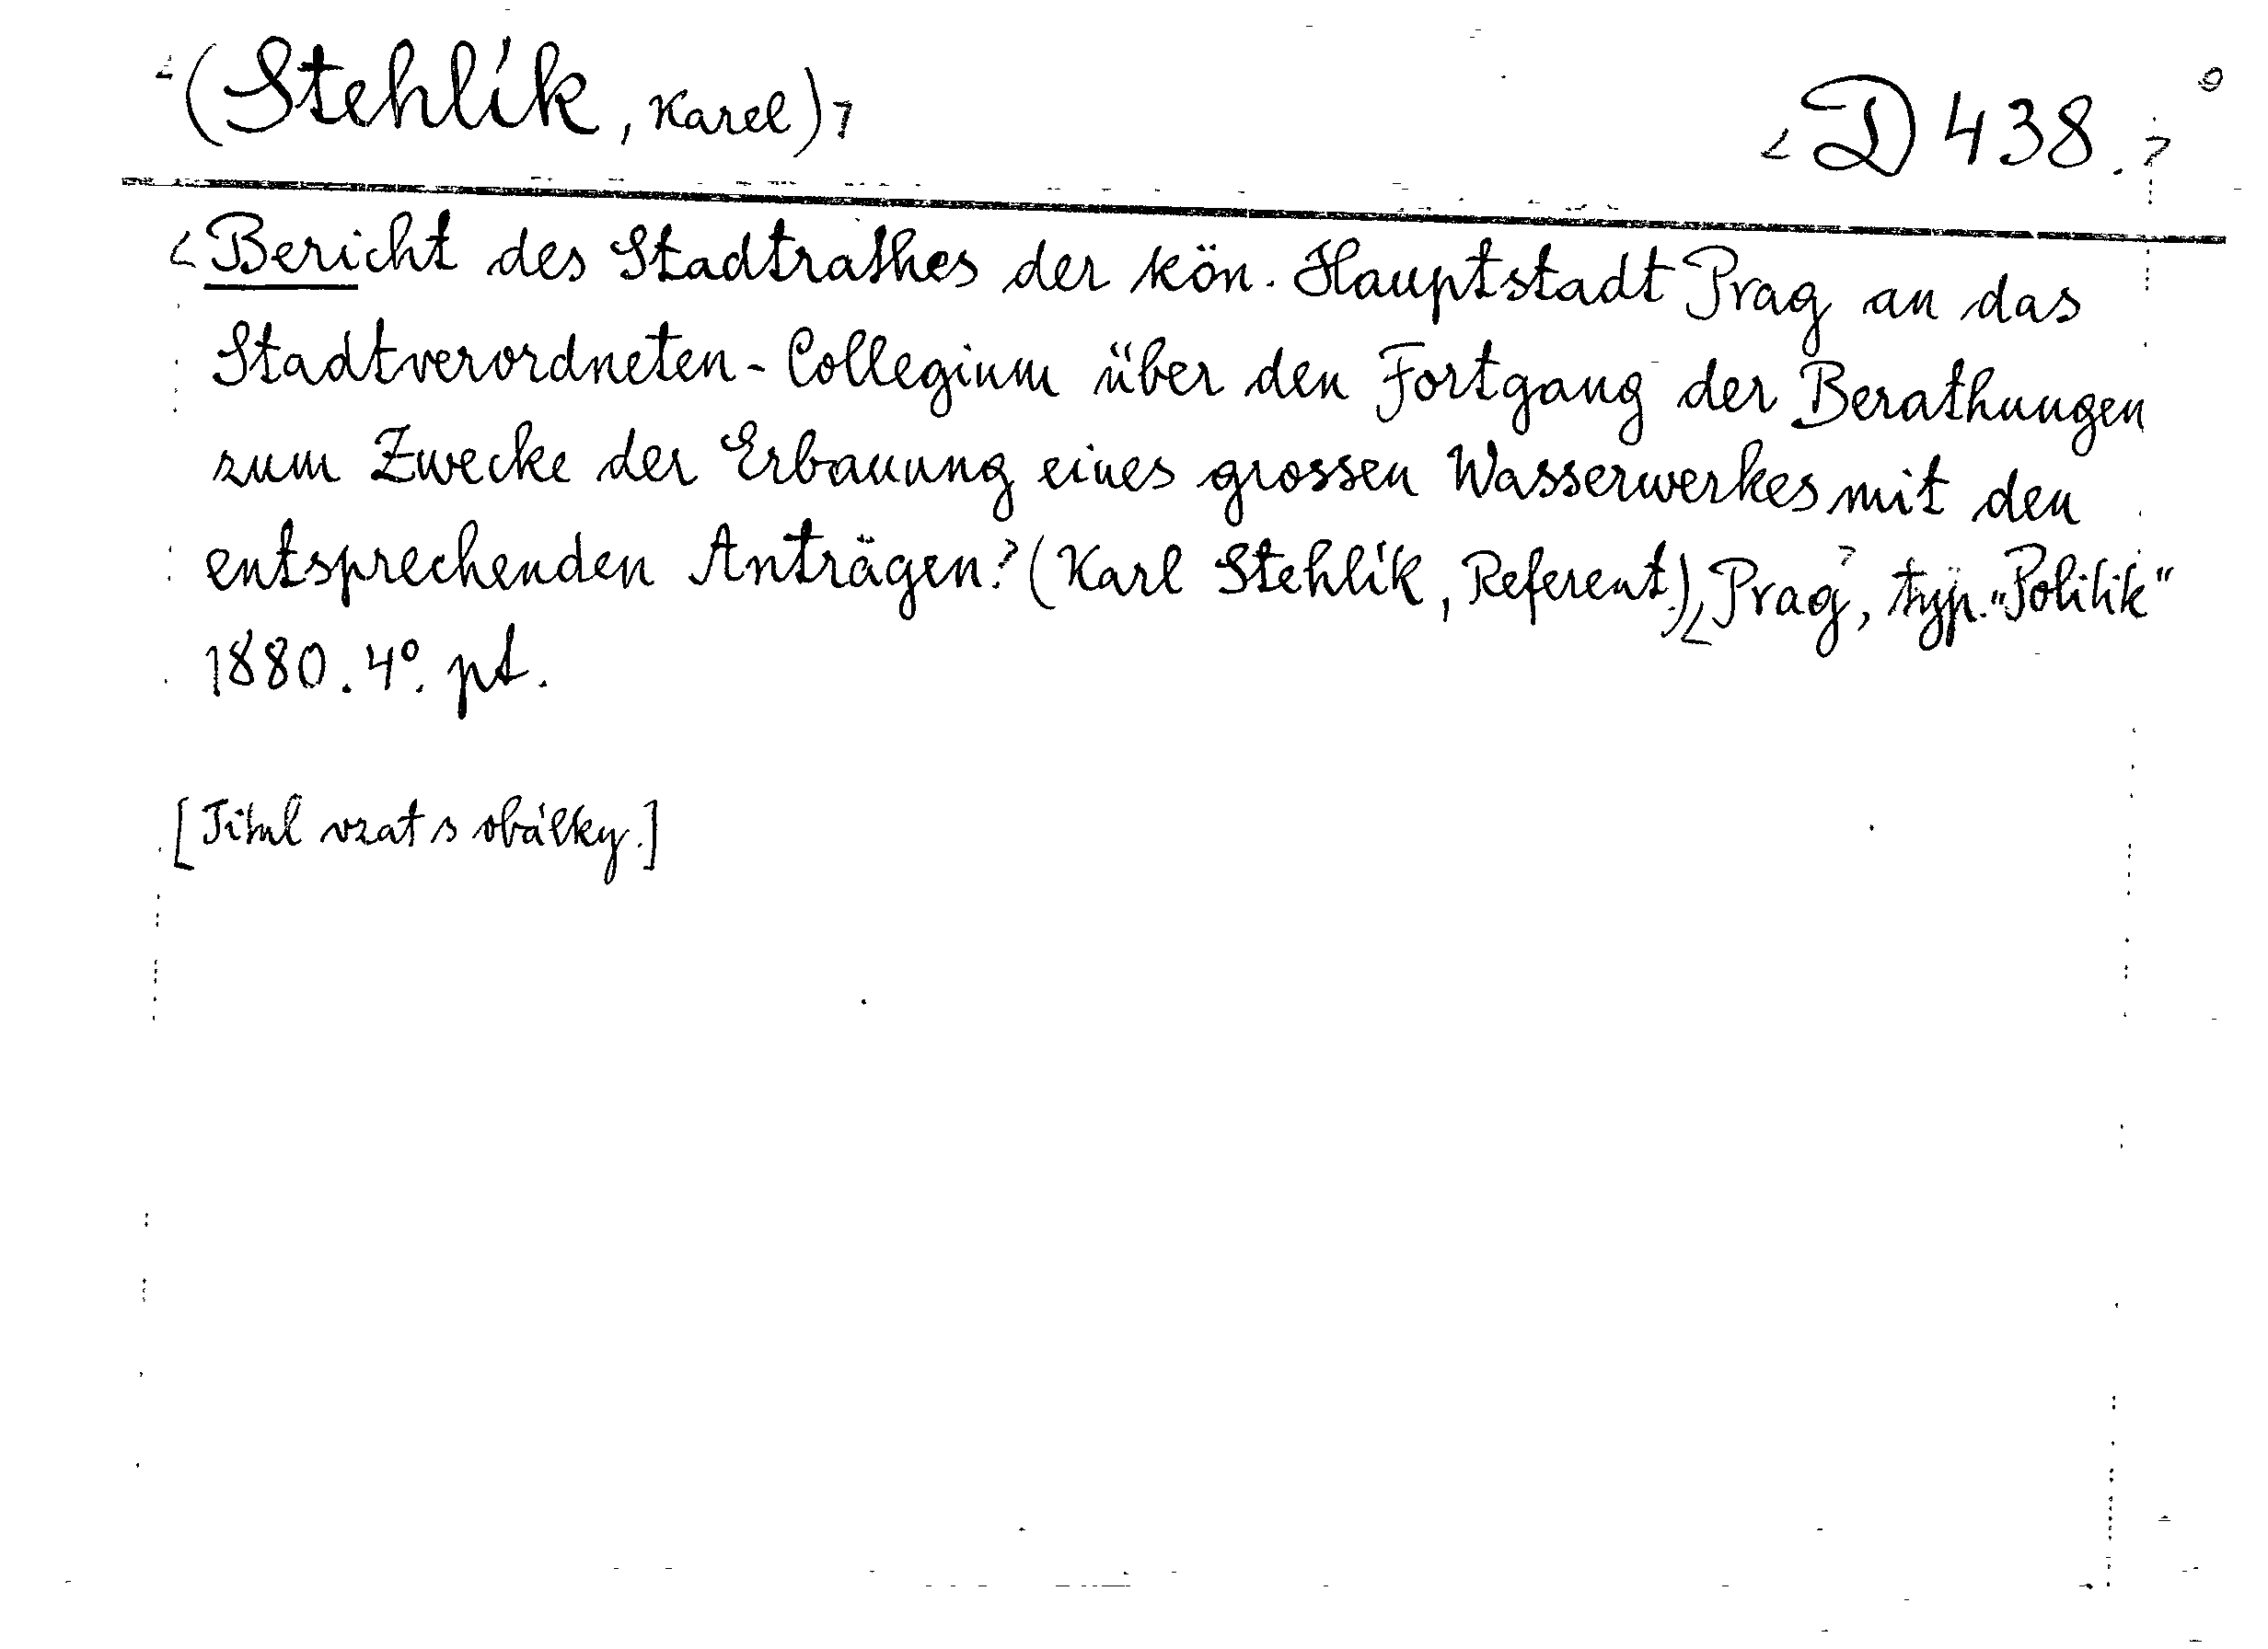 (Stehlík, Karel)
D 438.
Bericht des Stadtrathes der kön. Hauptstadt Prag an das
Stadtverordneten-Collegium über den Fortgang der Berathungen
zum Zwecke der Erbauung eines grossen Wasserwerkes mit den
entsprechenden Anträgen. (Karl Stehlík, Referent.) Prag, typ. "Politik"
1880. 4°. pt.
[Titul vzat s obálky.]